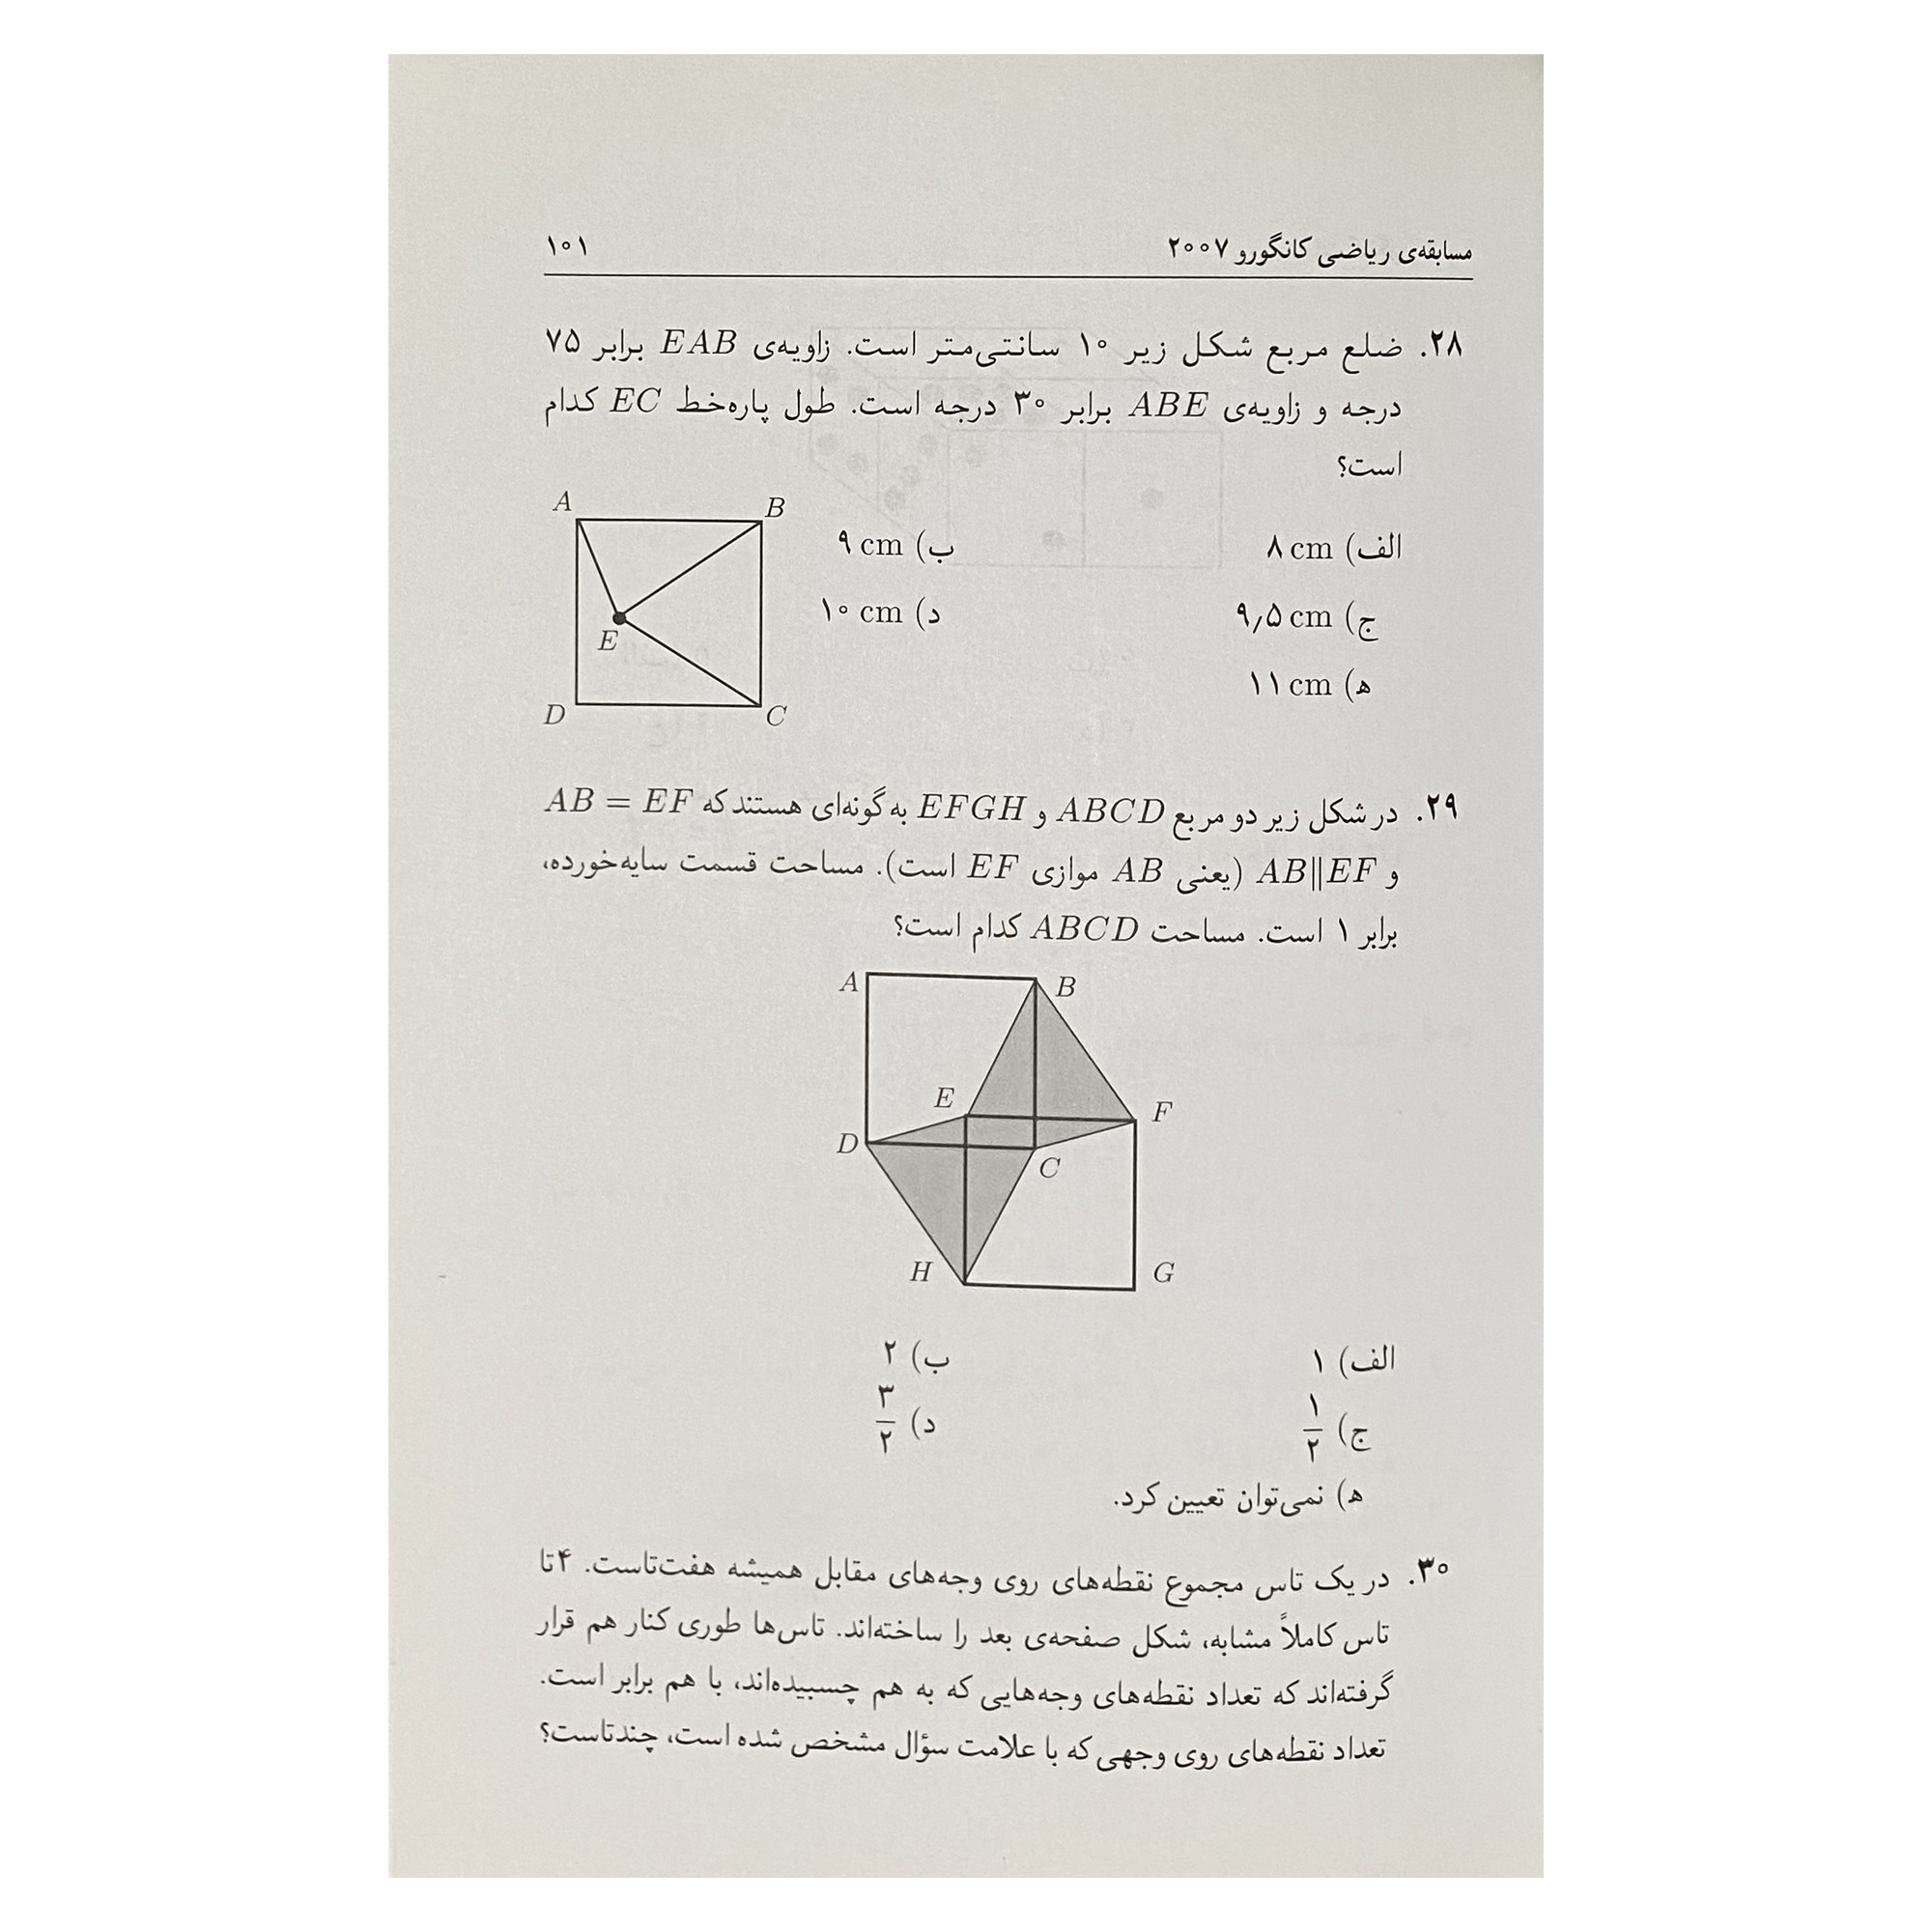 مسابقه‌ی ریاضی کانگورو ۲۰۰۷ ۱۰۱
۲۸. ضلع مربع شکل زیر ۱۰ سانتی‌متر است. زاویه‌ی EAB برابر ۷۵
درجه و زاویه‌ی ABE برابر ۳۰ درجه است. طول پاره‌خط EC کدام
است؟
الف) ۸ cm ب) ۹ cm
ج) ۹٫۵ cm د) ۱۰ cm
ه) ۱۱ cm
A B
E
D C
۲۹. در شکل زیر دو مربع ABCD و EFGH به گونه‌ای هستند که AB = EF
و AB||EF (یعنی AB موازی EF است). مساحت قسمت سایه‌خورده،
برابر ۱ است. مساحت ABCD کدام است؟
A B
E F
D C
H G
الف) ۱ ب) ۲
ج) ۱/۲ د) ۳/۲
ه) نمی‌توان تعیین کرد.
۳۰. در یک تاس مجموع نقطه‌های روی وجه‌های مقابل همیشه هفت‌تاست. ۴تا
تاس کاملاً مشابه، شکل صفحه‌ی بعد را ساخته‌اند. تاس‌ها طوری کنار هم قرار
گرفته‌اند که تعداد نقطه‌های وجه‌هایی که به هم چسبیده‌اند، با هم برابر است.
تعداد نقطه‌های روی وجهی که با علامت سؤال مشخص شده است، چندتاست؟